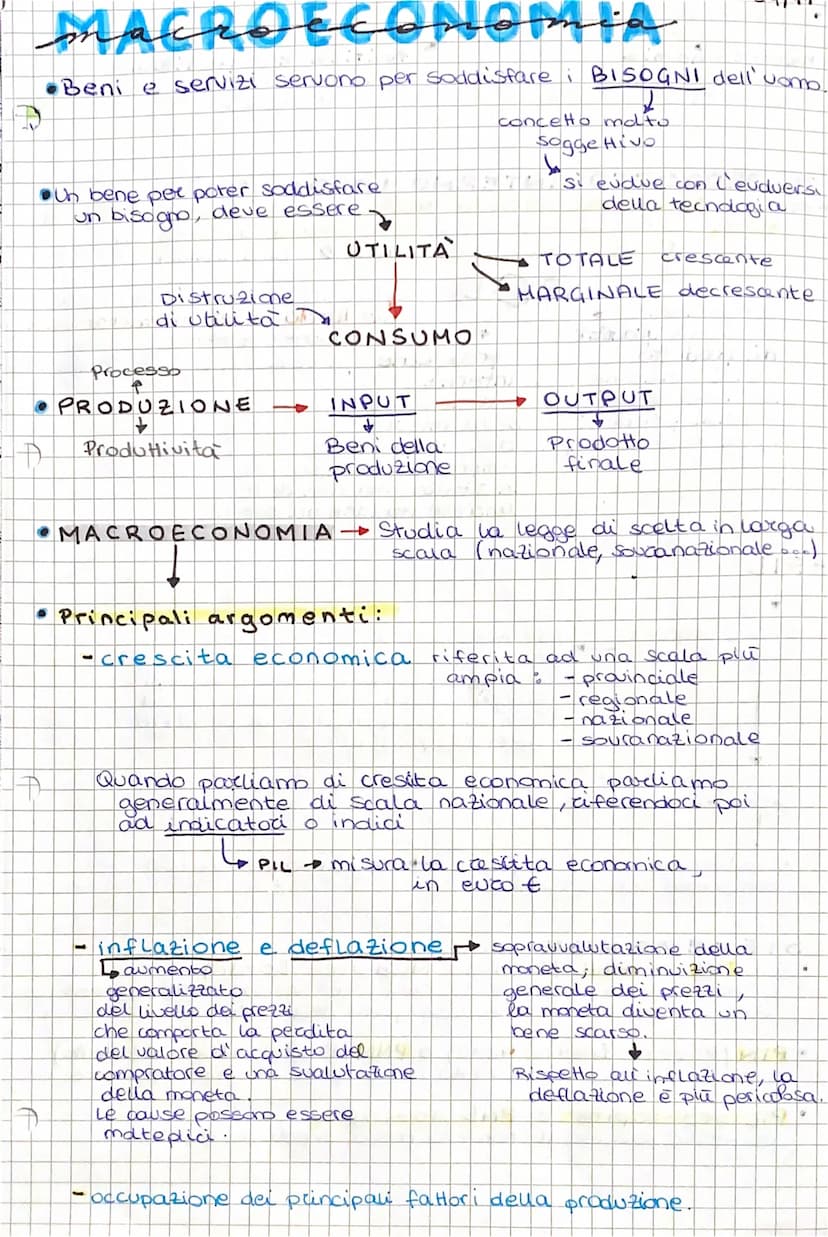 MACROECONOMIA
macroeconomia
•Beni e servizi servono per soddisfare i BISOGNI dell'uomo.
concetto molto
soggettivo
si evolve con l'evolversi
della tecnologia
•Un bene per poter soddisfare
un bisogno, deve essere
UTILITÀ
TOTALE crescente
MARGINALE decrescente
Distruzione
di utilità
CONSUMO
Processo
• PRODUZIONE → INPUT → OUTPUT
Produttività
Beni della
produzione
Prodotto
finale
• MACROECONOMIA → Studia la legge di scelta in larga
scala (nazionale, sovranazionale ...)
• Principali argomenti:
- crescita economica riferita ad una scala più
ampia : - provinciale
- regionale
- nazionale
- sovranazionale
Quando parliamo di crescita economica parliamo
generalmente di scala nazionale, riferendoci poi
ad indicatori o indici
PIL → misura la crescita economica
in euro €
- inflazione e deflazione → sopravvalutazione della
moneta; diminuizione
generale dei prezzi,
la moneta diventa un
bene scarso.
Rispetto all'inflazione, la
deflazione è più pericolosa.
aumento
generalizzato
del livello dei prezzi
che comporta la perdita
del valore d'acquisto del
compratore e una svalutazione
della moneta.
Le cause possono essere
molteplici.
- occupazione dei principali fattori della produzione.